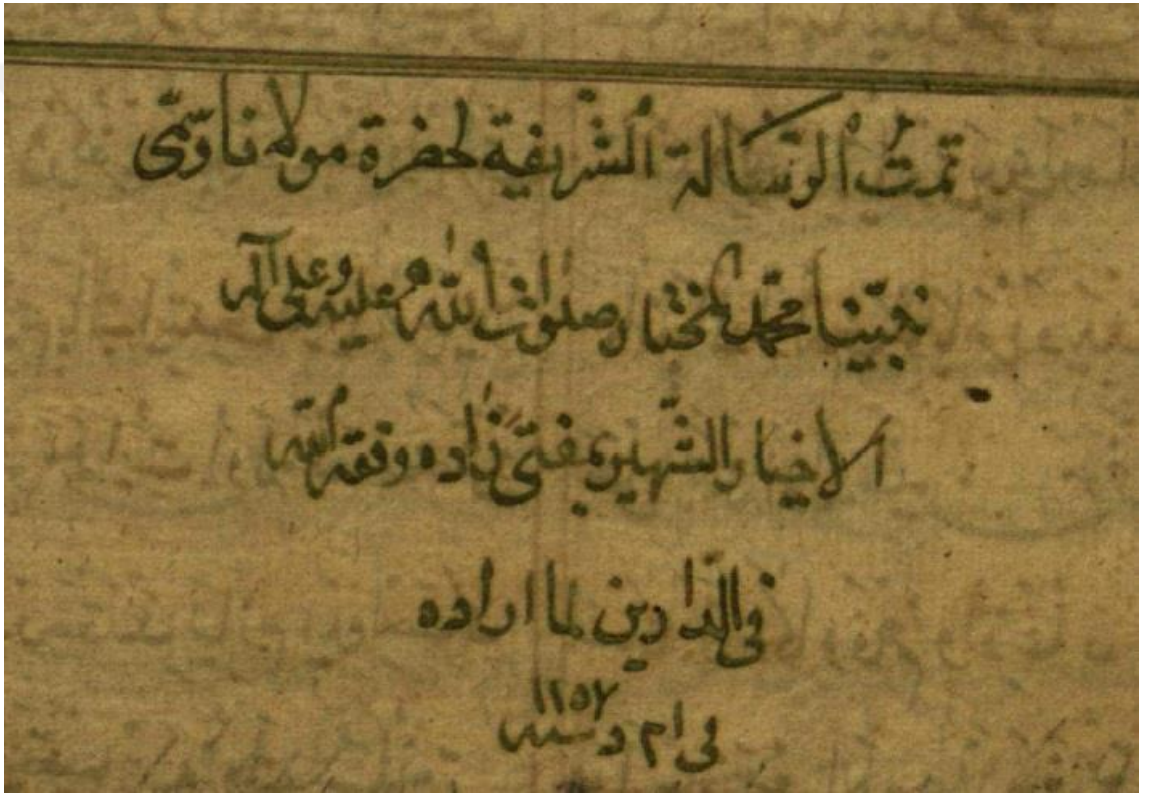 تمت الرسالة الشريفة لحضرة مولانا وسمى
نبينا محمد المختار صلوات الله عليه وعلى آله
الاخيار الشهير بمفتى زاده وفقه الله
فى الدارين لما اراده
فى ام د سنه ١١٥٧